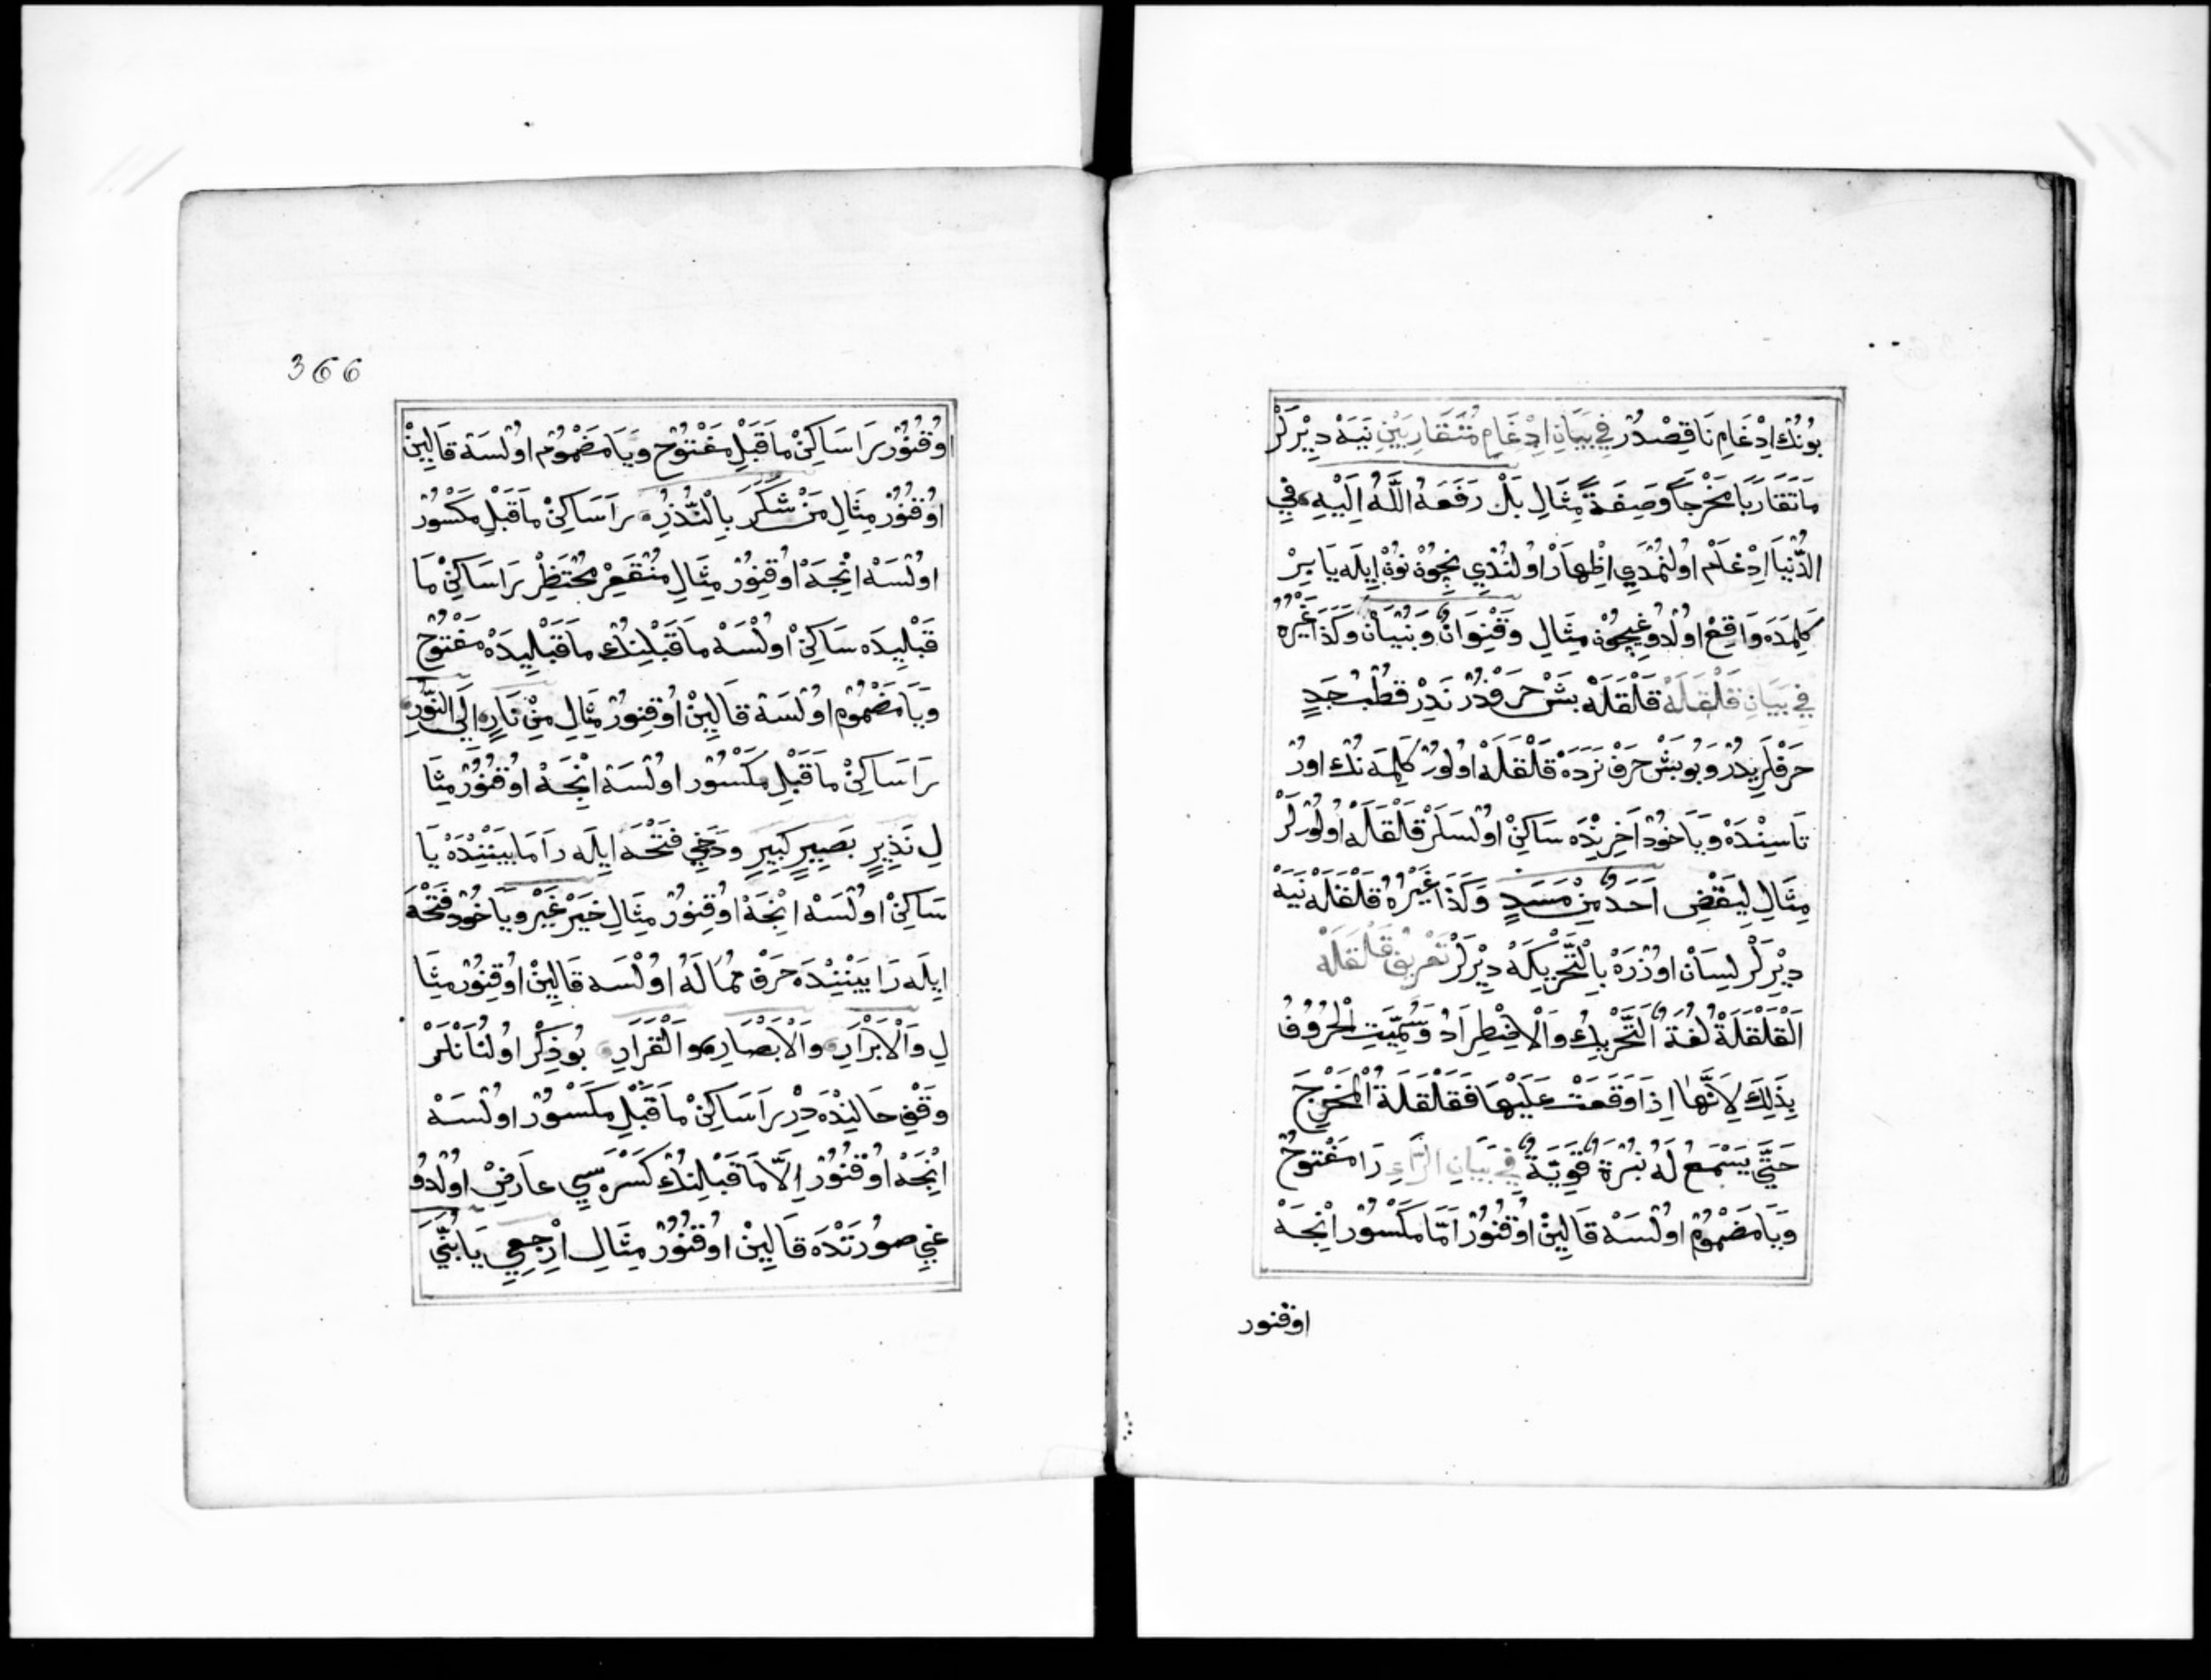 بُونُكْ اِدْغَامِ نَاقِصْدُرْ فِي بَيَانِ اِدْغَامِ مُتَقَارِبَيْنِ نَيَهْ دِيْرلَرْ
مَاتَقَارَبَا مَخْرَجَاً وَصِفَةً مِثَالِ بَلْ رَفَعَهُ اللَّهُ اِلَيْهِ فِي
الدُّنْيَا اِدْغَامْ اُولْنَمْدِي اِظْهَارْ اُولُنْدِي نِچُوْنْ نُوْنْ اِيلَه يَا بِرْ
كَلِمَدَه وَاقِعْ اُولْدُوغِيچُوْنْ مِثَالِ وَقِنْوَانٌ وَبُنْيَانٌ وَكَذَا غَيْرُهُ
فِي بَيَانِ قَلْقَلَهْ قَلْقَلَهْ بَشْ حَرْفْدُرْ نَدِرْ قُطْبُ جَدٍ
حَرْفْلَرِيدُرْ وَبُو بَشْ حَرْفْ نَرَدَهْ قَلْقَلَهْ اُولُورْ كَلِمَه نُكْ اورْ
تَاسِنْدَهْ وَيَاخُودْ اَخِرِنْدَه سَاكِنْ اُولْسَلَرْ قَلْقَلَهْ اُولُورْلَرْ
مِثَالِ لِيَقْضِ اَحَدٌ مِنْ مَسَدٍ وَكَذَا غَيْرُهُ قَلْقَلَهْ نَيَهْ
دِيْرلَرْ لِسَانْ اوُزْرَهْ بِالْتَّحْرِيكَهْ دِيْرلَرْ تَعْرِيفِ قَلْقَلَهْ
اَلْقَلْقَلَةُ لُغَةً اَلتَّحْرِيكُ وَالْاِضْطِرَادُ وَسُمِّيَتِ الْحُرُوفُ
بِذَلِكَ لِاَنَّهَا اِذَا وَقَعَتْ عَلَيْهَا فَقَلْقَلَةُ الْمَخْرَجِ
حَتَّي يَسْمَعُ لَهُ نَبْرَةٌ قَوِيَّةٌ فِي بَيَانِ الرَّاءِ رَا مَفْتُوحْ
وَيَا مَضْمُومْ اُولْسَهْ قَالِيِنْ اُوقُنُورْ اَمَّا مَكْسُورْ اِنْجَهْ
اوقنور
366
اوُقُنُورْ رَا سَاكِنْ مَاقَبْلِ مَفْتُوحْ وَيَا مَضْمُومْ اُولْسَهْ قَالِيِنْ
اوُقُنُورْ مِثَالِ مَنْ شَكَرَ بِالْنُّذُرِ رَا سَاكِنْ مَاقَبْلِ مَكْسُورْ
اُولْسَهْ اِنْجَهْ اوُقُنُورْ مِثَالِ مُنْقَعِرْ مُحْتَظِرْ رَا سَاكِنْ مَا
قَبْلِيدَه سَاكِنْ اوُلْسَهْ مَاقَبْلِنُكْ مَاقَبْلِيدَهْ مَفْتُوحْ
وَيَا مَضْمُومْ اوُلْسَهْ قَالِيِنْ اوُقُنُورْ مِثَالِ مِنْ نَارٍ اِلَي النُّورِ
رَا سَاكِنْ مَاقَبْلِ مَكْسُورْ اوُلْسَهْ اِنْجَهْ اوُقُنُورْ مِثَا
لِ نَذِيرٍ بَصِيرٍ كَبِيرٍ وَدَخِي فَتْحَه اِيلَه رَا مَابَيْنِنْدَهْ يَا
سَاكِنْ اوُلْسَهْ اِنْجَهْ اوُقُنُورْ مِثَالِ خَيْرْ غَيْرْ وَيَاخُودْ فَتْحَه
اِيلَه رَا بَيْنِنْدَه حَرْفِ مُمَالَهْ اوُلْسَه قَالِيِنْ اوُقُنُورْ مِثَا
لِ وَالْاَبْرَارِ وَالْاَبْصَارِ وَالْقَرَارِ بُو ذِكْرْ اوُلُنَانْلَرْ
وَقْفِ حَالِنْدَه دِرْ رَا سَاكِنْ مَاقَبْلِ مَكْسُورْ اوُلْسَهْ
اِنْجَهْ اوُقُنُورْ اِلَّا مَاقَبْلِنُكْ كَسْرَه سِي عَارِضْ اوُلْدُو
غِي صُورَتْدَه قَالِيِنْ اوُقُنُورْ مِثَالِ اِرْجِعِي يَابُنَيَّ